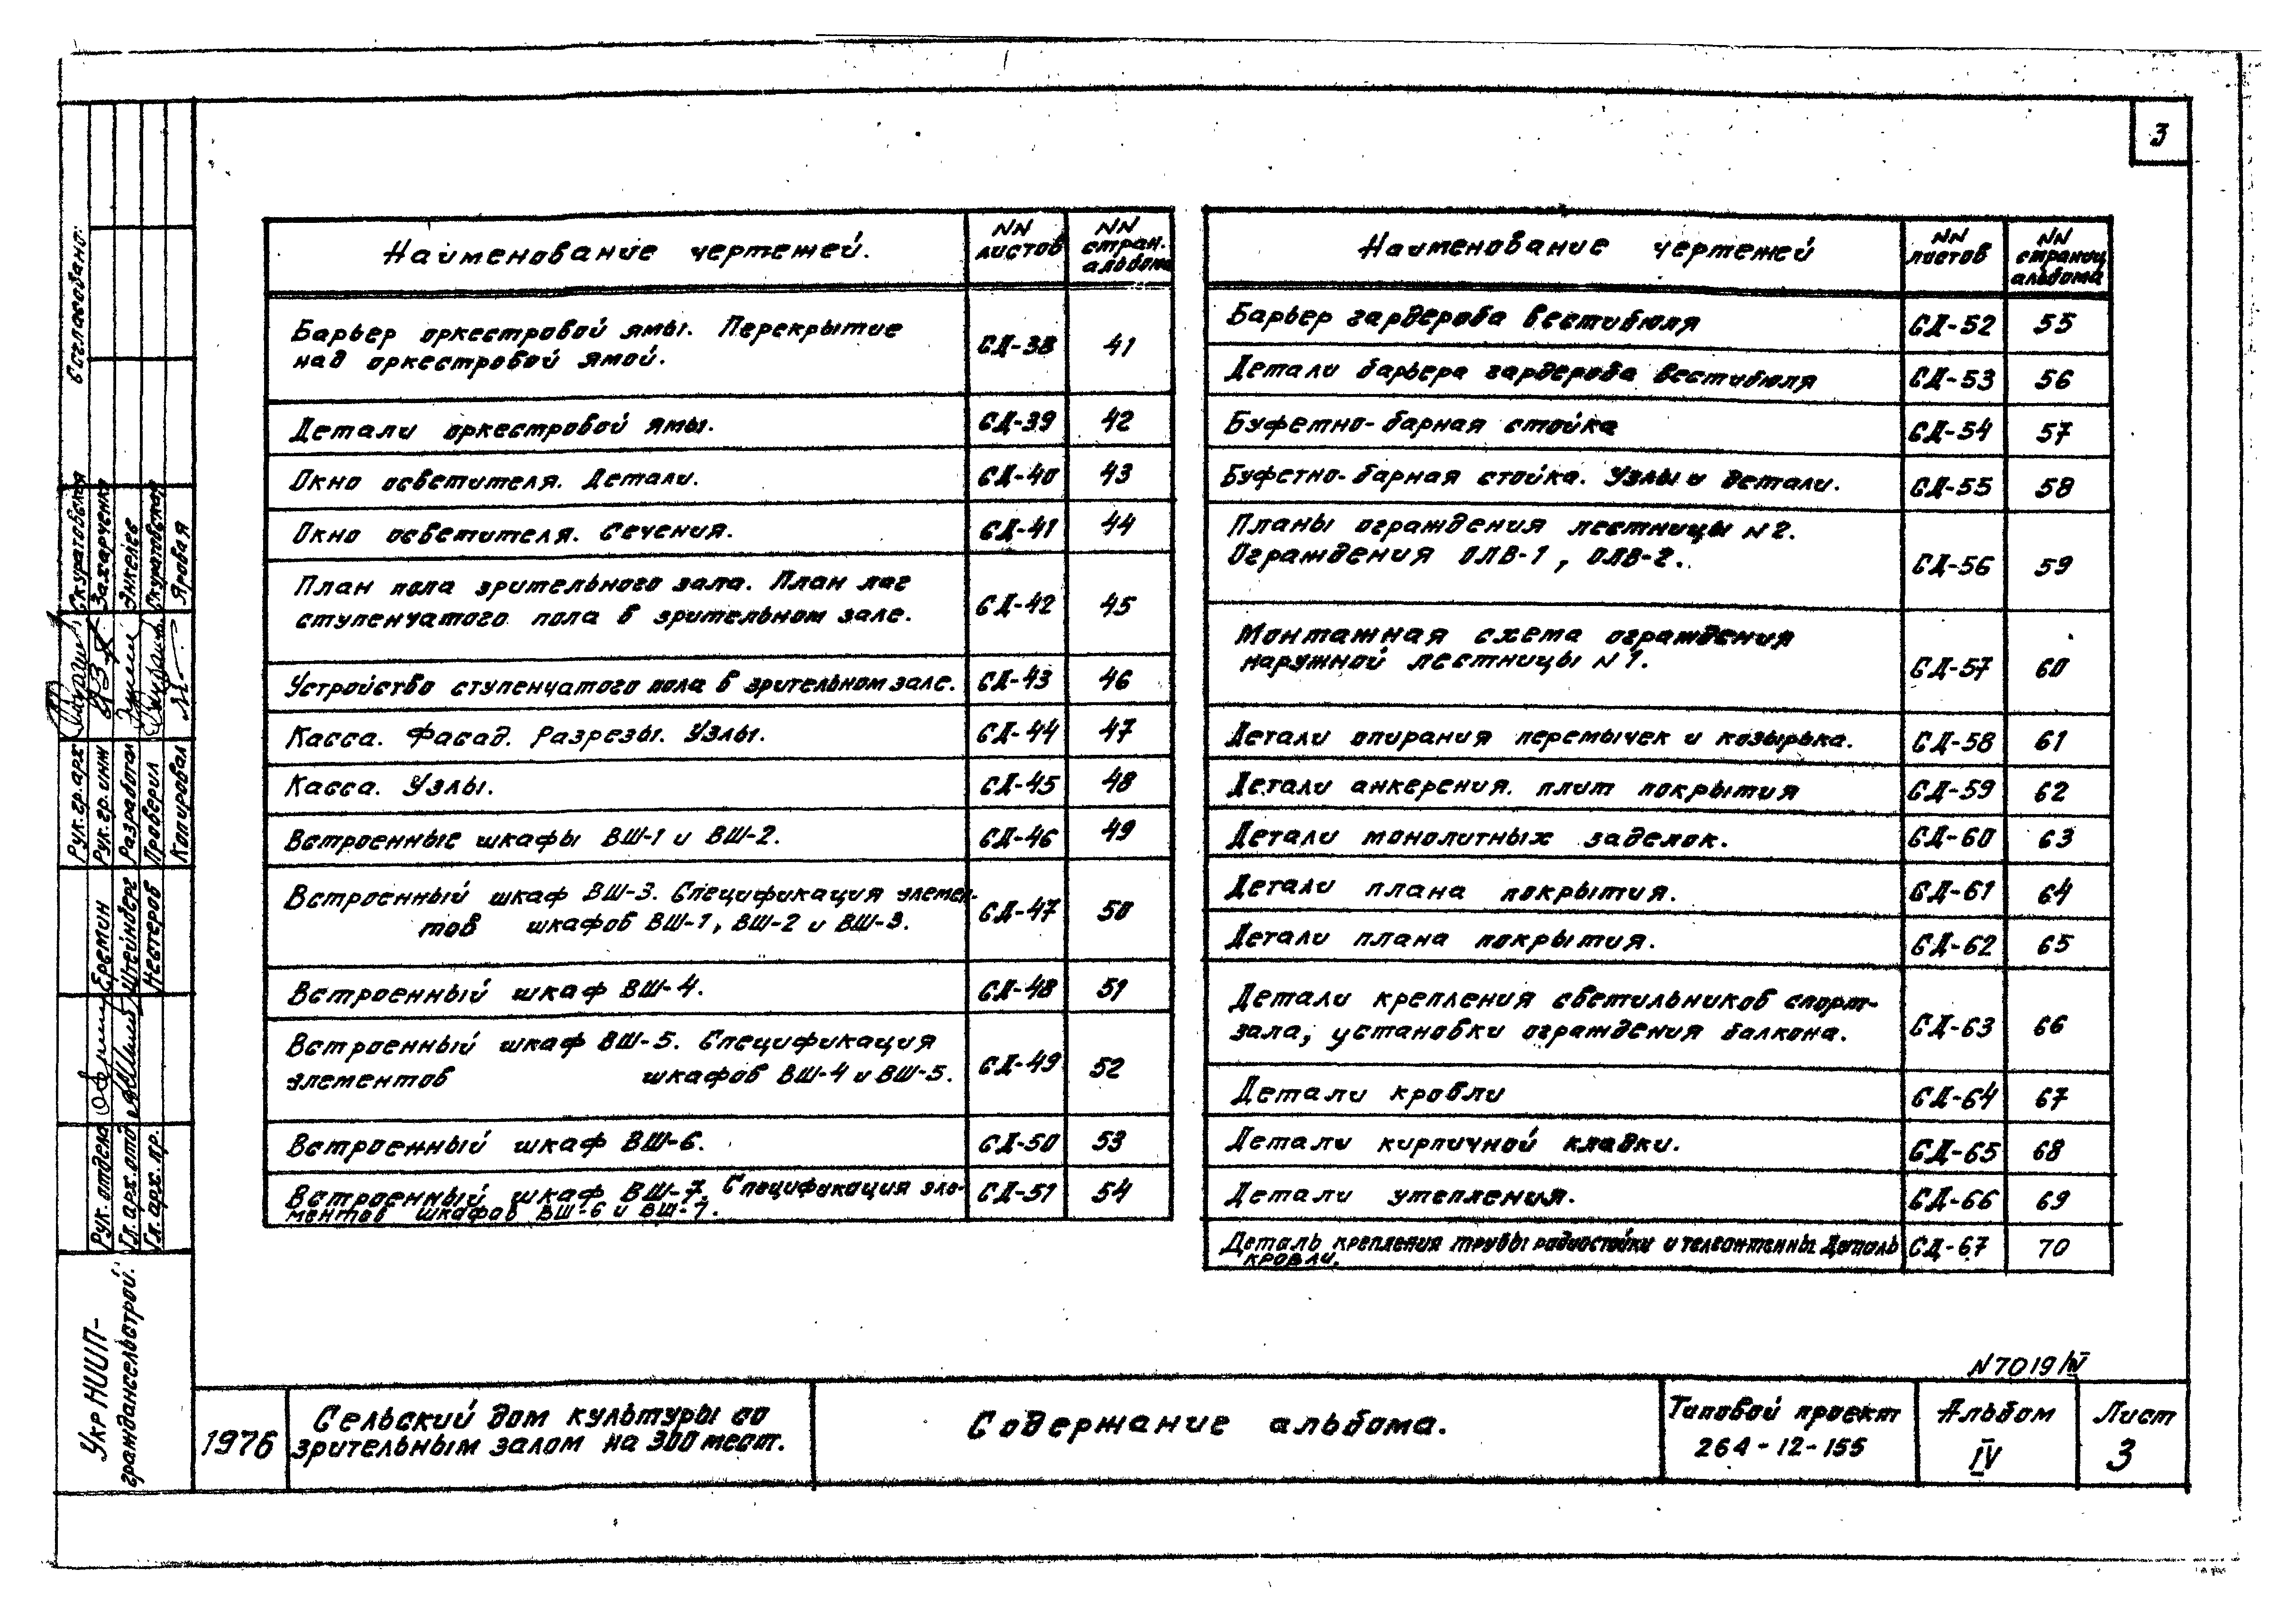 3
Наименование чертежей.
NN листов
NN стран. альбома
Барьер оркестровой ямы. Перекрытие
над оркестровой ямой.
СД-38
41
Детали оркестровой ямы.
СД-39
42
Окно осветителя. Детали.
СД-40
43
Окно осветителя. Сечения.
СД-41
44
План пола зрительного зала. План лаг
ступенчатого пола в зрительном зале.
СД-42
45
Устройство ступенчатого пола в зрительном зале.
СД-43
46
Касса. Фасад. Разрезы. Узлы.
СД-44
47
Касса. Узлы.
СД-45
48
Встроенные шкафы ВШ-1 и ВШ-2.
СД-46
49
Встроенный шкаф ВШ-3. Спецификация элемен-
тов шкафов ВШ-1, ВШ-2 и ВШ-3.
СД-47
50
Встроенный шкаф ВШ-4.
СД-48
51
Встроенный шкаф ВШ-5. Спецификация
элементов шкафов ВШ-4 и ВШ-5.
СД-49
52
Встроенный шкаф ВШ-6.
СД-50
53
Встроенный шкаф ВШ-7. Спецификация эле-
ментов шкафов ВШ-6 и ВШ-7.
СД-51
54
Наименование чертежей
NN листов
NN страниц альбома
Барьер гардероба вестибюля
СД-52
55
Детали барьера гардероба вестибюля
СД-53
56
Буфетно-барная стойка
СД-54
57
Буфетно-барная стойка. Узлы и детали.
СД-55
58
Планы ограждения лестницы N2.
Ограждения ОЛВ-1, ОЛВ-2.
СД-56
59
Монтажная схема ограждения
наружной лестницы N1.
СД-57
60
Детали опирания перемычек и козырька.
СД-58
61
Детали анкерения. плит покрытия
СД-59
62
Детали монолитных заделок.
СД-60
63
Детали плана покрытия.
СД-61
64
Детали плана покрытия.
СД-62
65
Детали крепления светильников спорт-
зала, установки ограждения балкона.
СД-63
66
Детали кровли
СД-64
67
Детали кирпичной кладки.
СД-65
68
Детали утепления.
СД-66
69
Деталь крепления трубы радиостойки и телеантенны. Деталь
кровли.
СД-67
70
Согласовано:
Рук. гр. арх
Скуратовская
Рук. гр. инж
Захарченко
Разработал
Энгелев
Проверил
Скуратовская
Копировал
Яровая
Рук. отдела
Еремин
Гл. арх. отд
Штейнберг
Гл. арх. пр.
Нестеров
УкрНИИП-
граждансельстрой.
N7019/IV
1976
Сельский дом культуры со
зрительным залом на 300 мест.
Содержание альбома.
Типовой проект
264-12-155
Альбом
IV
Лист
3